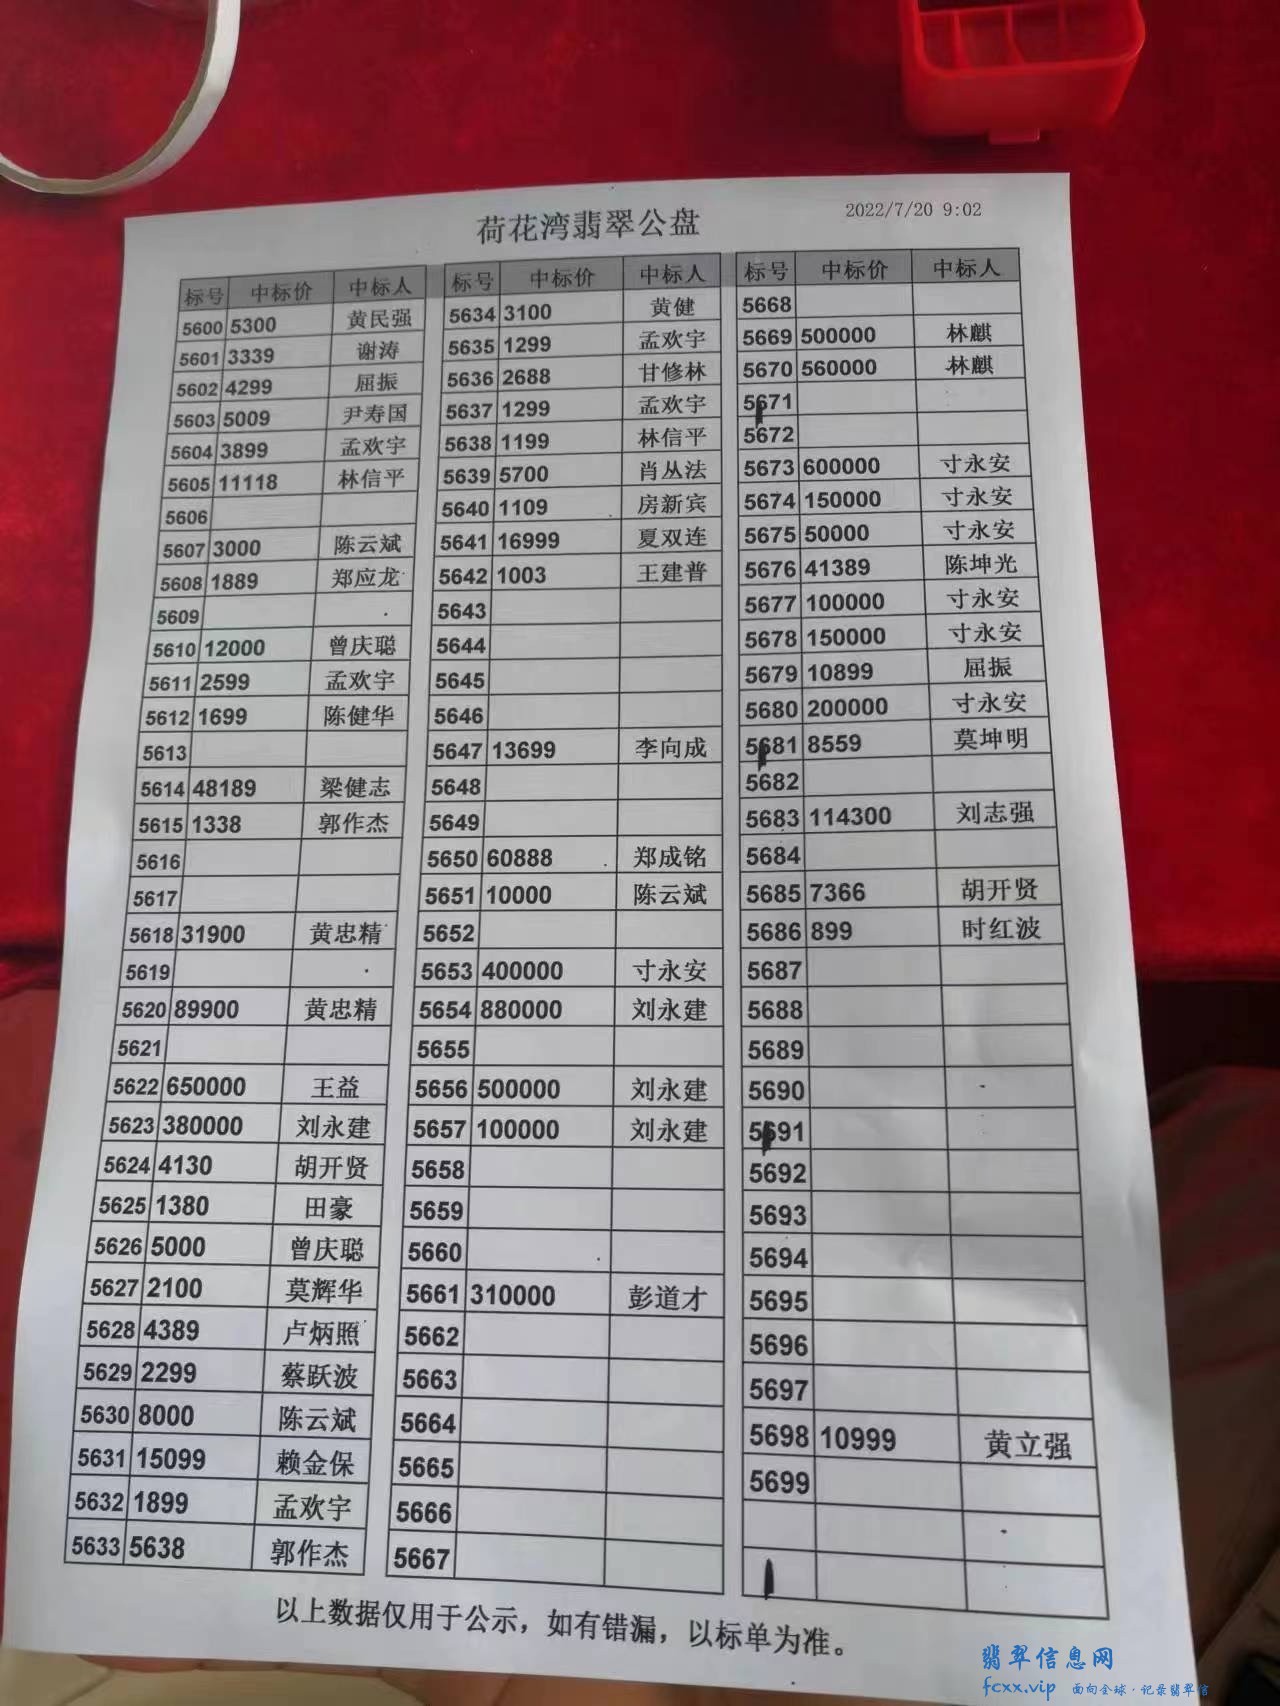 荷花湾翡翠公盘
2022/7/20 9:02
标号 中标价 中标人
5600 5300 黄民强
5601 3339 谢涛
5602 4299 屈振
5603 5009 尹寿国
5604 3899 孟欢宇
5605 11118 林信平
5606
5607 3000 陈云斌
5608 1889 郑应龙
5609
5610 12000 曾庆聪
5611 2599 孟欢宇
5612 1699 陈健华
5613
5614 48189 梁健志
5615 1338 郭作杰
5616
5617
5618 31900 黄忠精
5619
5620 89900 黄忠精
5621
5622 650000 王益
5623 380000 刘永建
5624 4130 胡开贤
5625 1380 田豪
5626 5000 曾庆聪
5627 2100 莫辉华
5628 4389 卢炳照
5629 2299 蔡跃波
5630 8000 陈云斌
5631 15099 赖金保
5632 1899 孟欢宇
5633 5638 郭作杰
标号 中标价 中标人
5634 3100 黄健
5635 1299 孟欢宇
5636 2688 甘修林
5637 1299 孟欢宇
5638 1199 林信平
5639 5700 肖丛法
5640 1109 房新宾
5641 16999 夏双连
5642 1003 王建普
5643
5644
5645
5646
5647 13699 李向成
5648
5649
5650 60888 郑成铭
5651 10000 陈云斌
5652
5653 400000 寸永安
5654 880000 刘永建
5655
5656 500000 刘永建
5657 100000 刘永建
5658
5659
5660
5661 310000 彭道才
5662
5663
5664
5665
5666
5667
标号 中标价 中标人
5668
5669 500000 林麒
5670 560000 林麒
5671
5672
5673 600000 寸永安
5674 150000 寸永安
5675 50000 寸永安
5676 41389 陈坤光
5677 100000 寸永安
5678 150000 寸永安
5679 10899 屈振
5680 200000 寸永安
5681 8559 莫坤明
5682
5683 114300 刘志强
5684
5685 7366 胡开贤
5686 899 时红波
5687
5688
5689
5690
5691
5692
5693
5694
5695
5696
5697
5698 10999 黄立强
5699
以上数据仅用于公示，如有错漏，以标单为准。
翡翠信息网
fcxx.vip 面向全球·记录翡翠信